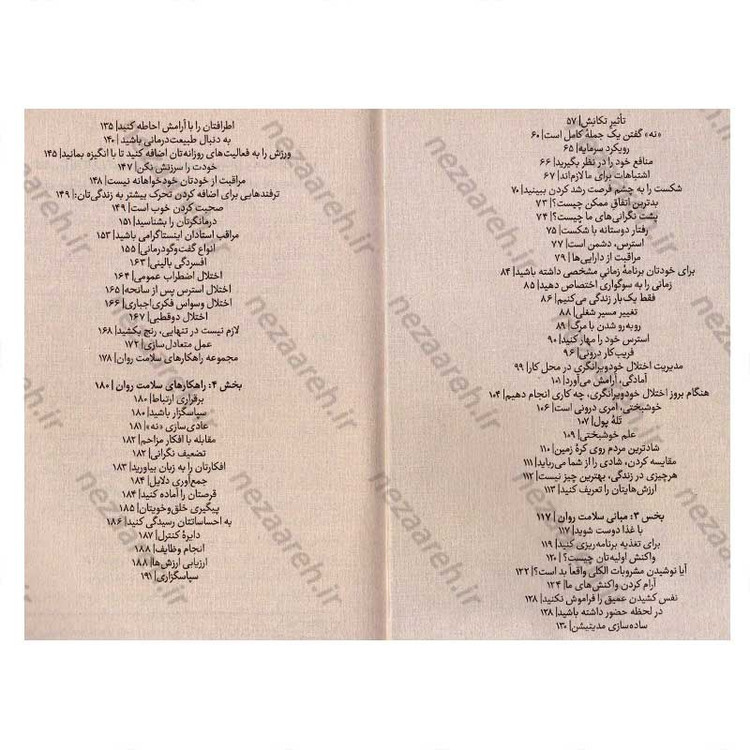 تأثیر تکانش| ۵۷
«نه» گفتن یک جملهٔ کامل است| ۶۰
رویکرد سرمایه| ۶۵
منافع خود را در نظر بگیرید| ۶۶
اشتباهات برای ما لازم‌اند| ۶۷
شکست را به چشم فرصت رشد کردن ببینید| ۷۰
بدترین اتفاق ممکن چیست؟| ۷۳
پشت نگرانی‌های ما چیست؟| ۷۴
رفتار دوستانه با شکست| ۷۵
استرس، دشمن است| ۷۷
مراقبت از دارایی‌ها| ۷۹
برای خودتان برنامهٔ زمانیِ مشخصی داشته باشید| ۸۴
زمانی را به سوگواری اختصاص دهید| ۸۵
فقط یک‌بار زندگی می‌کنیم| ۸۶
تغییر مسیر شغلی| ۸۸
روبه‌رو شدن با مرگ| ۸۹
استرس خود را مهار کنید| ۹۰
فریب‌کار درونی| ۹۶
مدیریت اختلال خودویرانگری در محل کار| ۹۹
آمادگی، آرامش می‌آورد| ۱۰۱
هنگام بروز اختلال خودویرانگری، چه کاری انجام دهیم| ۱۰۴
خوشبختی، امری درونی است| ۱۰۶
تلهٔ پول| ۱۰۷
علم خوشبختی| ۱۰۹
شادترین مردم روی کرهٔ زمین| ۱۱۰
مقایسه کردن، شادی را از شما می‌رباید| ۱۱۱
هرچیزی در زندگی، بهترین چیز نیست| ۱۱۲
ارزش‌هایتان را تعریف کنید| ۱۱۳
بخس ۳: مبانی سلامت روان| ۱۱۷
با غذا دوست شوید| ۱۱۷
برای تغذیه برنامه‌ریزی کنید| ۱۱۹
واکنش اولیه‌تان چیست؟| ۱۲۰
آیا نوشیدن مشروبات الکلی واقعاً بد است؟| ۱۲۲
آرام کردن واکنش‌های ما| ۱۲۴
نفس کشیدن عمیق را فراموش نکنید| ۱۲۸
در لحظه حضور داشته باشید| ۱۲۸
ساده‌سازی مدیتیشن| ۱۳۰
اطرافتان را با آرامش احاطه کنید| ۱۳۵
به دنبال طبیعت‌درمانی باشید| ۱۴۰
ورزش را به فعالیت‌های روزانه‌تان اضافه کنید تا با انگیزه بمانید| ۱۴۵
خودت را سرزنش نکن| ۱۴۷
مراقبت از خودتان خودخواهانه نیست| ۱۴۸
ترفندهایی برای اضافه کردن تحرک بیشتر به زندگی‌تان:| ۱۴۹
صحبت کردن خوب است| ۱۴۹
درمانگرتان را بشناسید| ۱۵۱
مراقب استادان اینستاگرامی باشید| ۱۵۳
انواع گفت‌وگودرمانی| ۱۵۵
افسردگی بالینی| ۱۶۳
اختلال اضطراب عمومی| ۱۶۴
اختلال استرس پس از سانحه| ۱۶۵
اختلال وسواس فکری‌اجباری| ۱۶۶
اختلال دوقطبی| ۱۶۷
لازم نیست در تنهایی، رنج بکشید| ۱۶۸
عمل متعادل‌سازی| ۱۷۲
مجموعه راهکارهای سلامت روان| ۱۷۸
بخش ۴: راهکارهای سلامت روان| ۱۸۰
برقراری ارتباط| ۱۸۰
سپاسگزار باشید| ۱۸۰
عادی‌سازی «نه»| ۱۸۱
مقابله با افکار مزاحم| ۱۸۲
تضعیف نگرانی| ۱۸۲
افکارتان را به زبان بیاورید| ۱۸۳
جمع‌آوری دلایل| ۱۸۴
قرصتان را آماده کنید| ۱۸۴
پیگیری خلق‌وخویتان| ۱۸۵
به احساساتتان رسیدگی کنید| ۱۸۶
دایرهٔ کنترل| ۱۸۷
انجام وظایف| ۱۸۸
ارزیابی ارزش‌ها| ۱۸۸
سپاسگزاری| ۱۹۱
nezaareh.ir